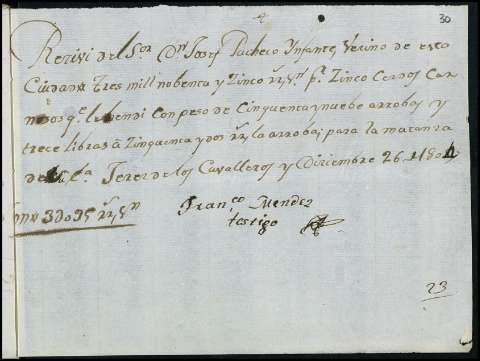 30
Rerivi del Sor Dn Josef Pacheco Ynfante, Vecino de esta
Ciudad Tres mill nobenta y Zinco rr.s vn pr. Zinco Cerdos Car
nosos qe. le bendi con peso de Cinquenta y nuebe arrobas y
trece libras à Zinquenta y dos rr.s la arroba; para la matanza
de Jerez de los Cavalleros y Diciembre 26
3095 rr.s vn
Franco Mendez
testigo
23